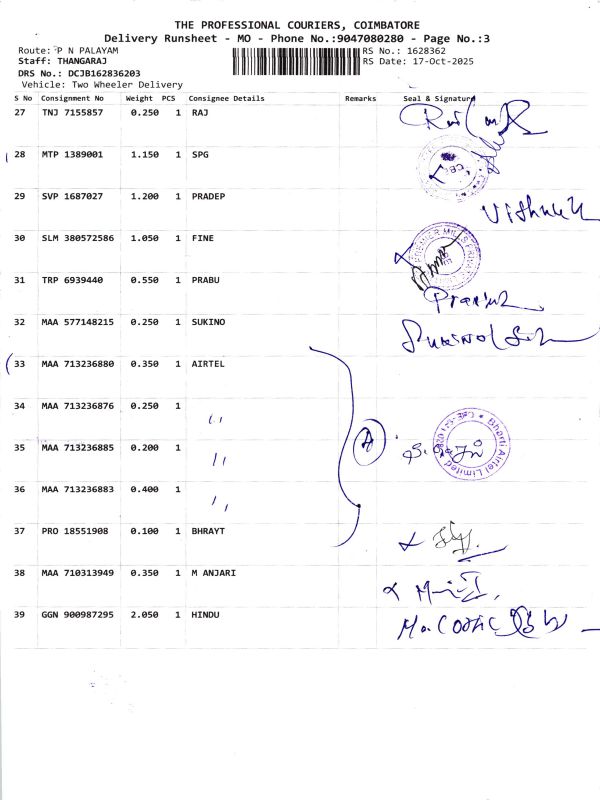 THE PROFESSIONAL COURIERS, COIMBATORE
Delivery Runsheet - MO - Phone No.:9047080280 - Page No.:3
Route: P N PALAYAM RS No.: 1628362
Staff: THANGARAJ RS Date: 17-Oct-2025
DRS No.: DCJB162836203
Vehicle: Two Wheeler Delivery
S No Consignment No Weight PCS Consignee Details Remarks Seal & Signature
27 TNJ 7155857 0.250 1 RAJ
28 MTP 1389001 1.150 1 SPG
29 SVP 1687027 1.200 1 PRADEP
30 SLM 380572586 1.050 1 FINE
31 TRP 6939440 0.550 1 PRABU
32 MAA 577148215 0.250 1 SUKINO
33 MAA 713236880 0.350 1 AIRTEL
34 MAA 713236876 0.250 1 ,,
35 MAA 713236885 0.200 1 ,, Bharti Airtel Limited
36 MAA 713236883 0.400 1 ,,
37 PRO 18551908 0.100 1 BHRAYT
38 MAA 710313949 0.350 1 M ANJARI
39 GGN 900987295 2.050 1 HINDU